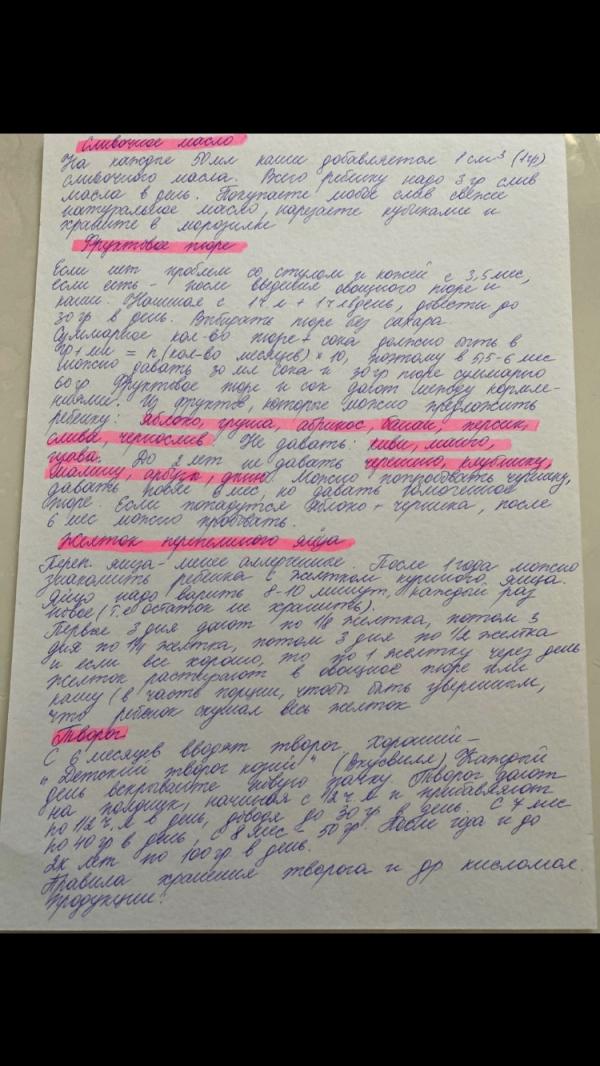 Сливочное масло
На каждые 50 мл каши добавляется 1 см³ (1гр)
сливочного масла. Всего ребенку надо 3 гр слив
масла в день. Покупаете любое слив свежее
натуральное масло, нарезаете кубиками и
храните в морозилке
Фруктовое пюре
Если нет проблем со стулом и кожей с 3,5 мес,
если есть - после введения овощного пюре и
каши. Начиная с 1 ч л + 1 ч л/день, довести до
30 гр в день. Выбирать пюре без сахара.
Суммарное кол-во пюре + сока должно быть в
гр + мл = n (кол-во месяцев) * 10, поэтому в 5,5-6 мес
можно давать 30 мл сока и 30 гр пюре суммарно
60 гр. Фруктовое пюре и сок дают между кормле-
ниями. Из фруктов, которые можно предложить
ребенку: яблоко, груша, абрикос, банан, персик,
слива, чернослив. Не давать: киви, манго,
гуава. До 2 лет не давать черешню, клубнику,
малину, арбуз, дыню. Можно попробовать чернику,
давать после 6 мес, но давать гомогенное
пюре. Если попадутся яблоко + черника, после
6 мес можно пробовать.
Желток перепелиного яйца
Переп. яйца - менее аллергенные. После 1 года можно
знакомить ребенка с желтком куриного яйца.
Яйцо надо варить 8-10 минут, каждый раз
новое (т.е остаток не хранить).
Первые 3 дня дают по 1/8 желтка, потом 3
дня по 1/4 желтка, потом 3 дня по 1/2 желтка
и если все хорошо, то по 1 желтку через день
Желток растирают в овощное пюре или
кашу (в часть порции, чтобы быть уверенным,
что ребенок скушал весь желток
Творог
С 6 месяцев вводят творог. Хороший -
"Детский творог козий" (Вкусвилл). Каждый
день вскрываете новую пачку. Творог дают
на полдник, начиная с 1/2 ч. л и прибавляют
по 1/2 ч. л в день, доводя до 30 гр в день. С 7 мес
по 40 гр в день, с 8 мес - 50 гр. После года и до
2х лет по 100 гр в день.
Правила хранения творога и др кисломол.
продукции: